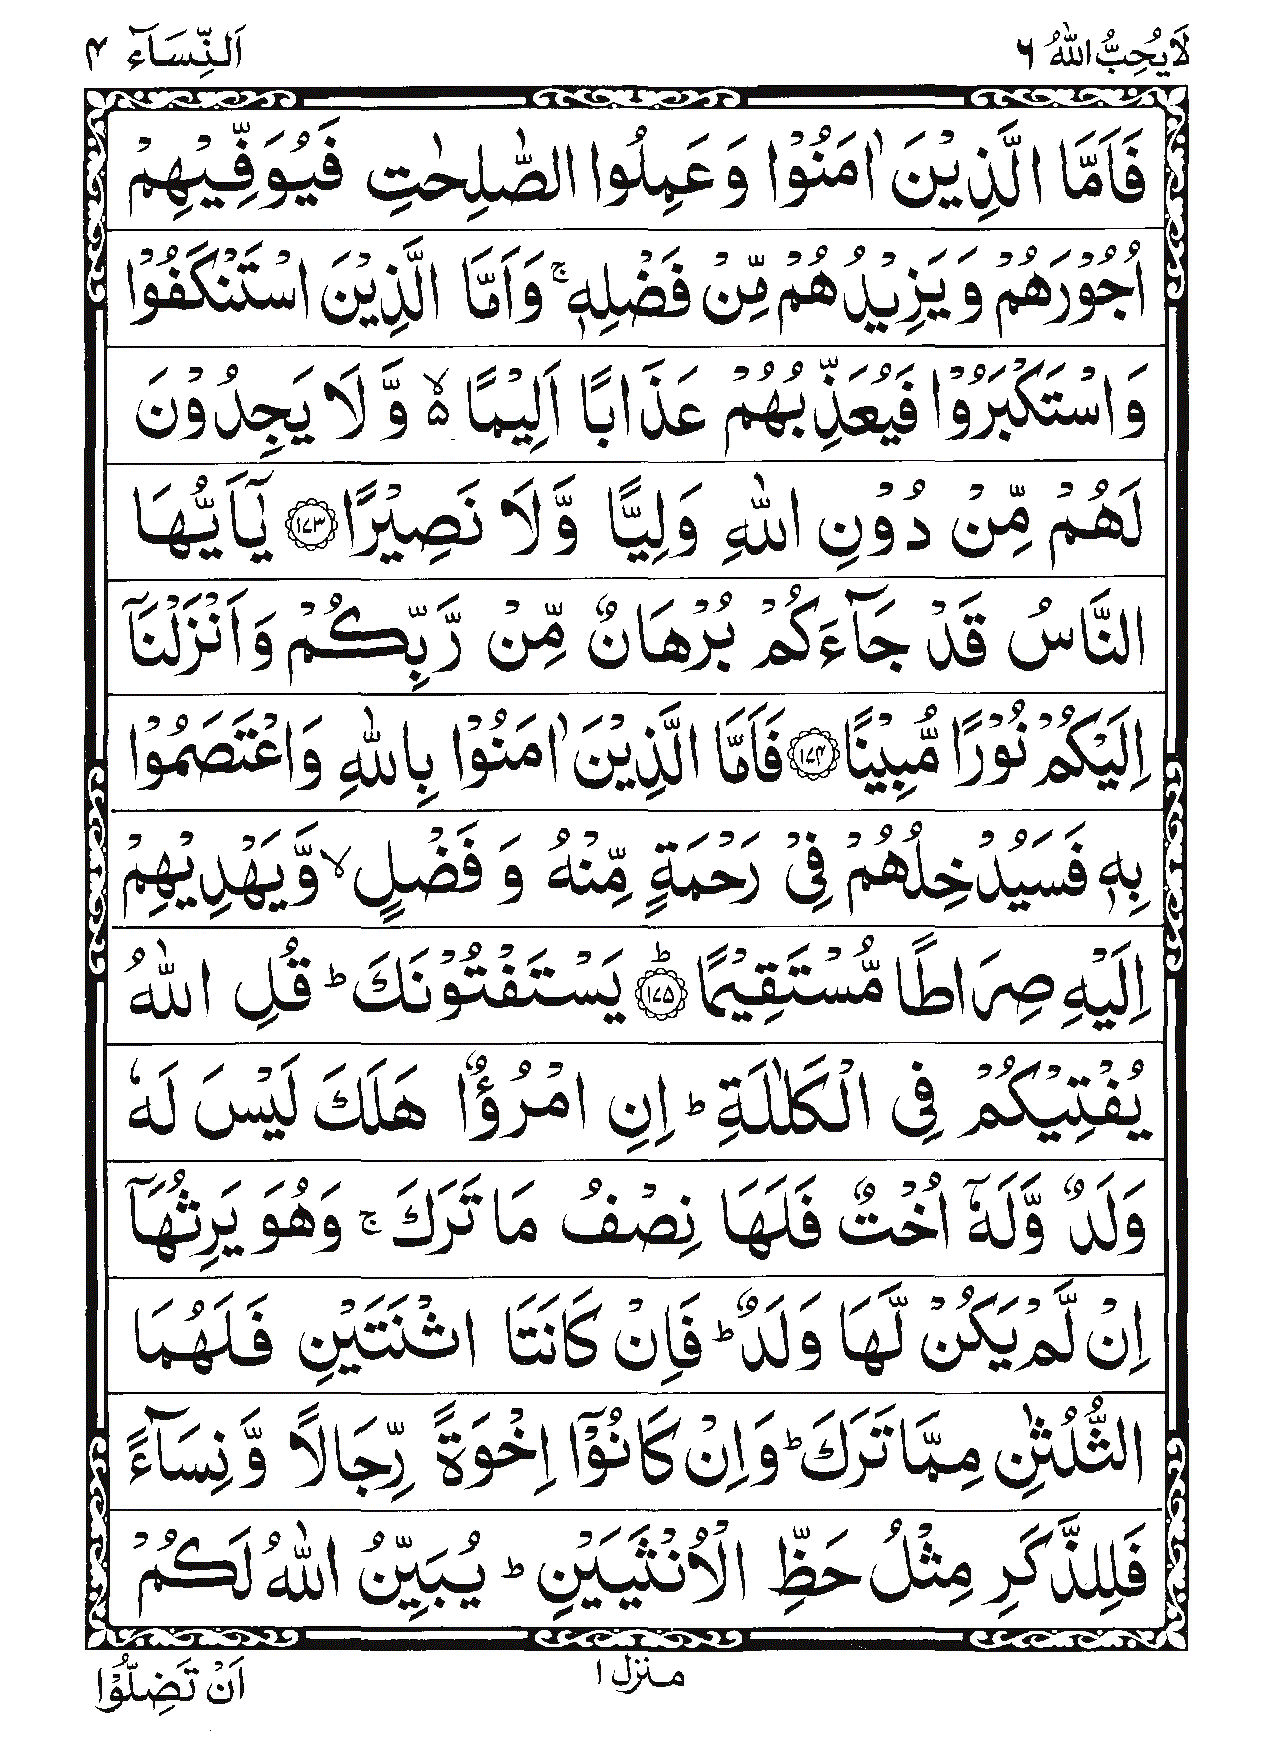 لَا یُحِبُّ اللّٰهُ ۶
اَلنِّسَآء ۴
فَاَمَّا الَّذِیْنَ اٰمَنُوْا وَ عَمِلُوا الصّٰلِحٰتِ فَیُوَفِّیْهِمْ
اُجُوْرَهُمْ وَ یَزِیْدُهُمْ مِّنْ فَضْلِهٖ ۚ وَ اَمَّا الَّذِیْنَ اسْتَنْكَفُوْا
وَ اسْتَكْبَرُوْا فَیُعَذِّبُهُمْ عَذَابًا اَلِیْمًا ۙ۵ وَّ لَا یَجِدُوْنَ
لَهُمْ مِّنْ دُوْنِ اللّٰهِ وَلِیًّا وَّ لَا نَصِیْرًا ۝۱۷۳ یٰۤاَیُّهَا
النَّاسُ قَدْ جَآءَكُمْ بُرْهَانٌ مِّنْ رَّبِّكُمْ وَ اَنْزَلْنَاۤ
اِلَیْكُمْ نُوْرًا مُّبِیْنًا ۝۱۷۴ فَاَمَّا الَّذِیْنَ اٰمَنُوْا بِاللّٰهِ وَ اعْتَصَمُوْا
بِهٖ فَسَیُدْخِلُهُمْ فِیْ رَحْمَةٍ مِّنْهُ وَ فَضْلٍ ۙ وَّ یَهْدِیْهِمْ
اِلَیْهِ صِرَاطًا مُّسْتَقِیْمًا ۝ؕ۱۷۵ یَسْتَفْتُوْنَكَ ؕ قُلِ اللّٰهُ
یُفْتِیْكُمْ فِی الْكَلٰلَةِ ؕ اِنِ امْرُؤٌا هَلَكَ لَیْسَ لَهٗ
وَلَدٌ وَّ لَهٗۤ اُخْتٌ فَلَهَا نِصْفُ مَا تَرَكَ ۚ وَ هُوَ یَرِثُهَاۤ
اِنْ لَّمْ یَكُنْ لَّهَا وَلَدٌ ؕ فَاِنْ كَانَتَا اثْنَتَیْنِ فَلَهُمَا
الثُّلُثٰنِ مِمَّا تَرَكَ ؕ وَ اِنْ كَانُوْۤا اِخْوَةً رِّجَالًا وَّ نِسَآءً
فَلِلذَّكَرِ مِثْلُ حَظِّ الْاُنْثَیَیْنِ ؕ یُبَیِّنُ اللّٰهُ لَكُمْ
منزل ۱
اَنْ تَضِلُّوْا